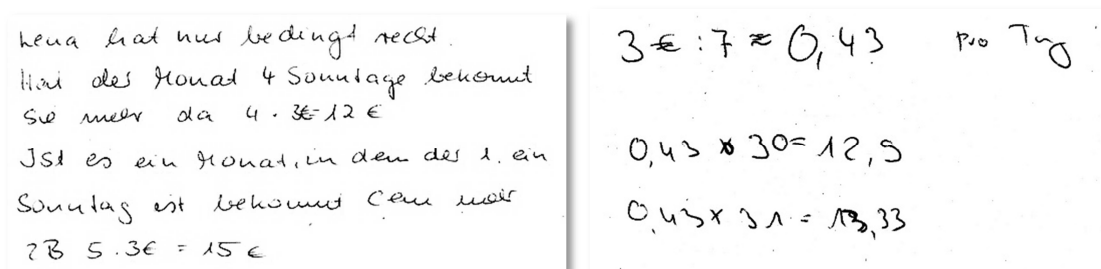 Lena hat nur bedingt recht.
Hat der Monat 4 Sonntage bekommt
sie mehr da 4 . 3€=12 €
Ist es ein Monat, in dem der 1. ein
Sonntag ist bekommt Cem mehr
zB 5 . 3€ = 15 €
3 € : 7 ≈ 0,43 pro Tag
0,43 x 30= 12,9
0,43 x 31 = 13,33